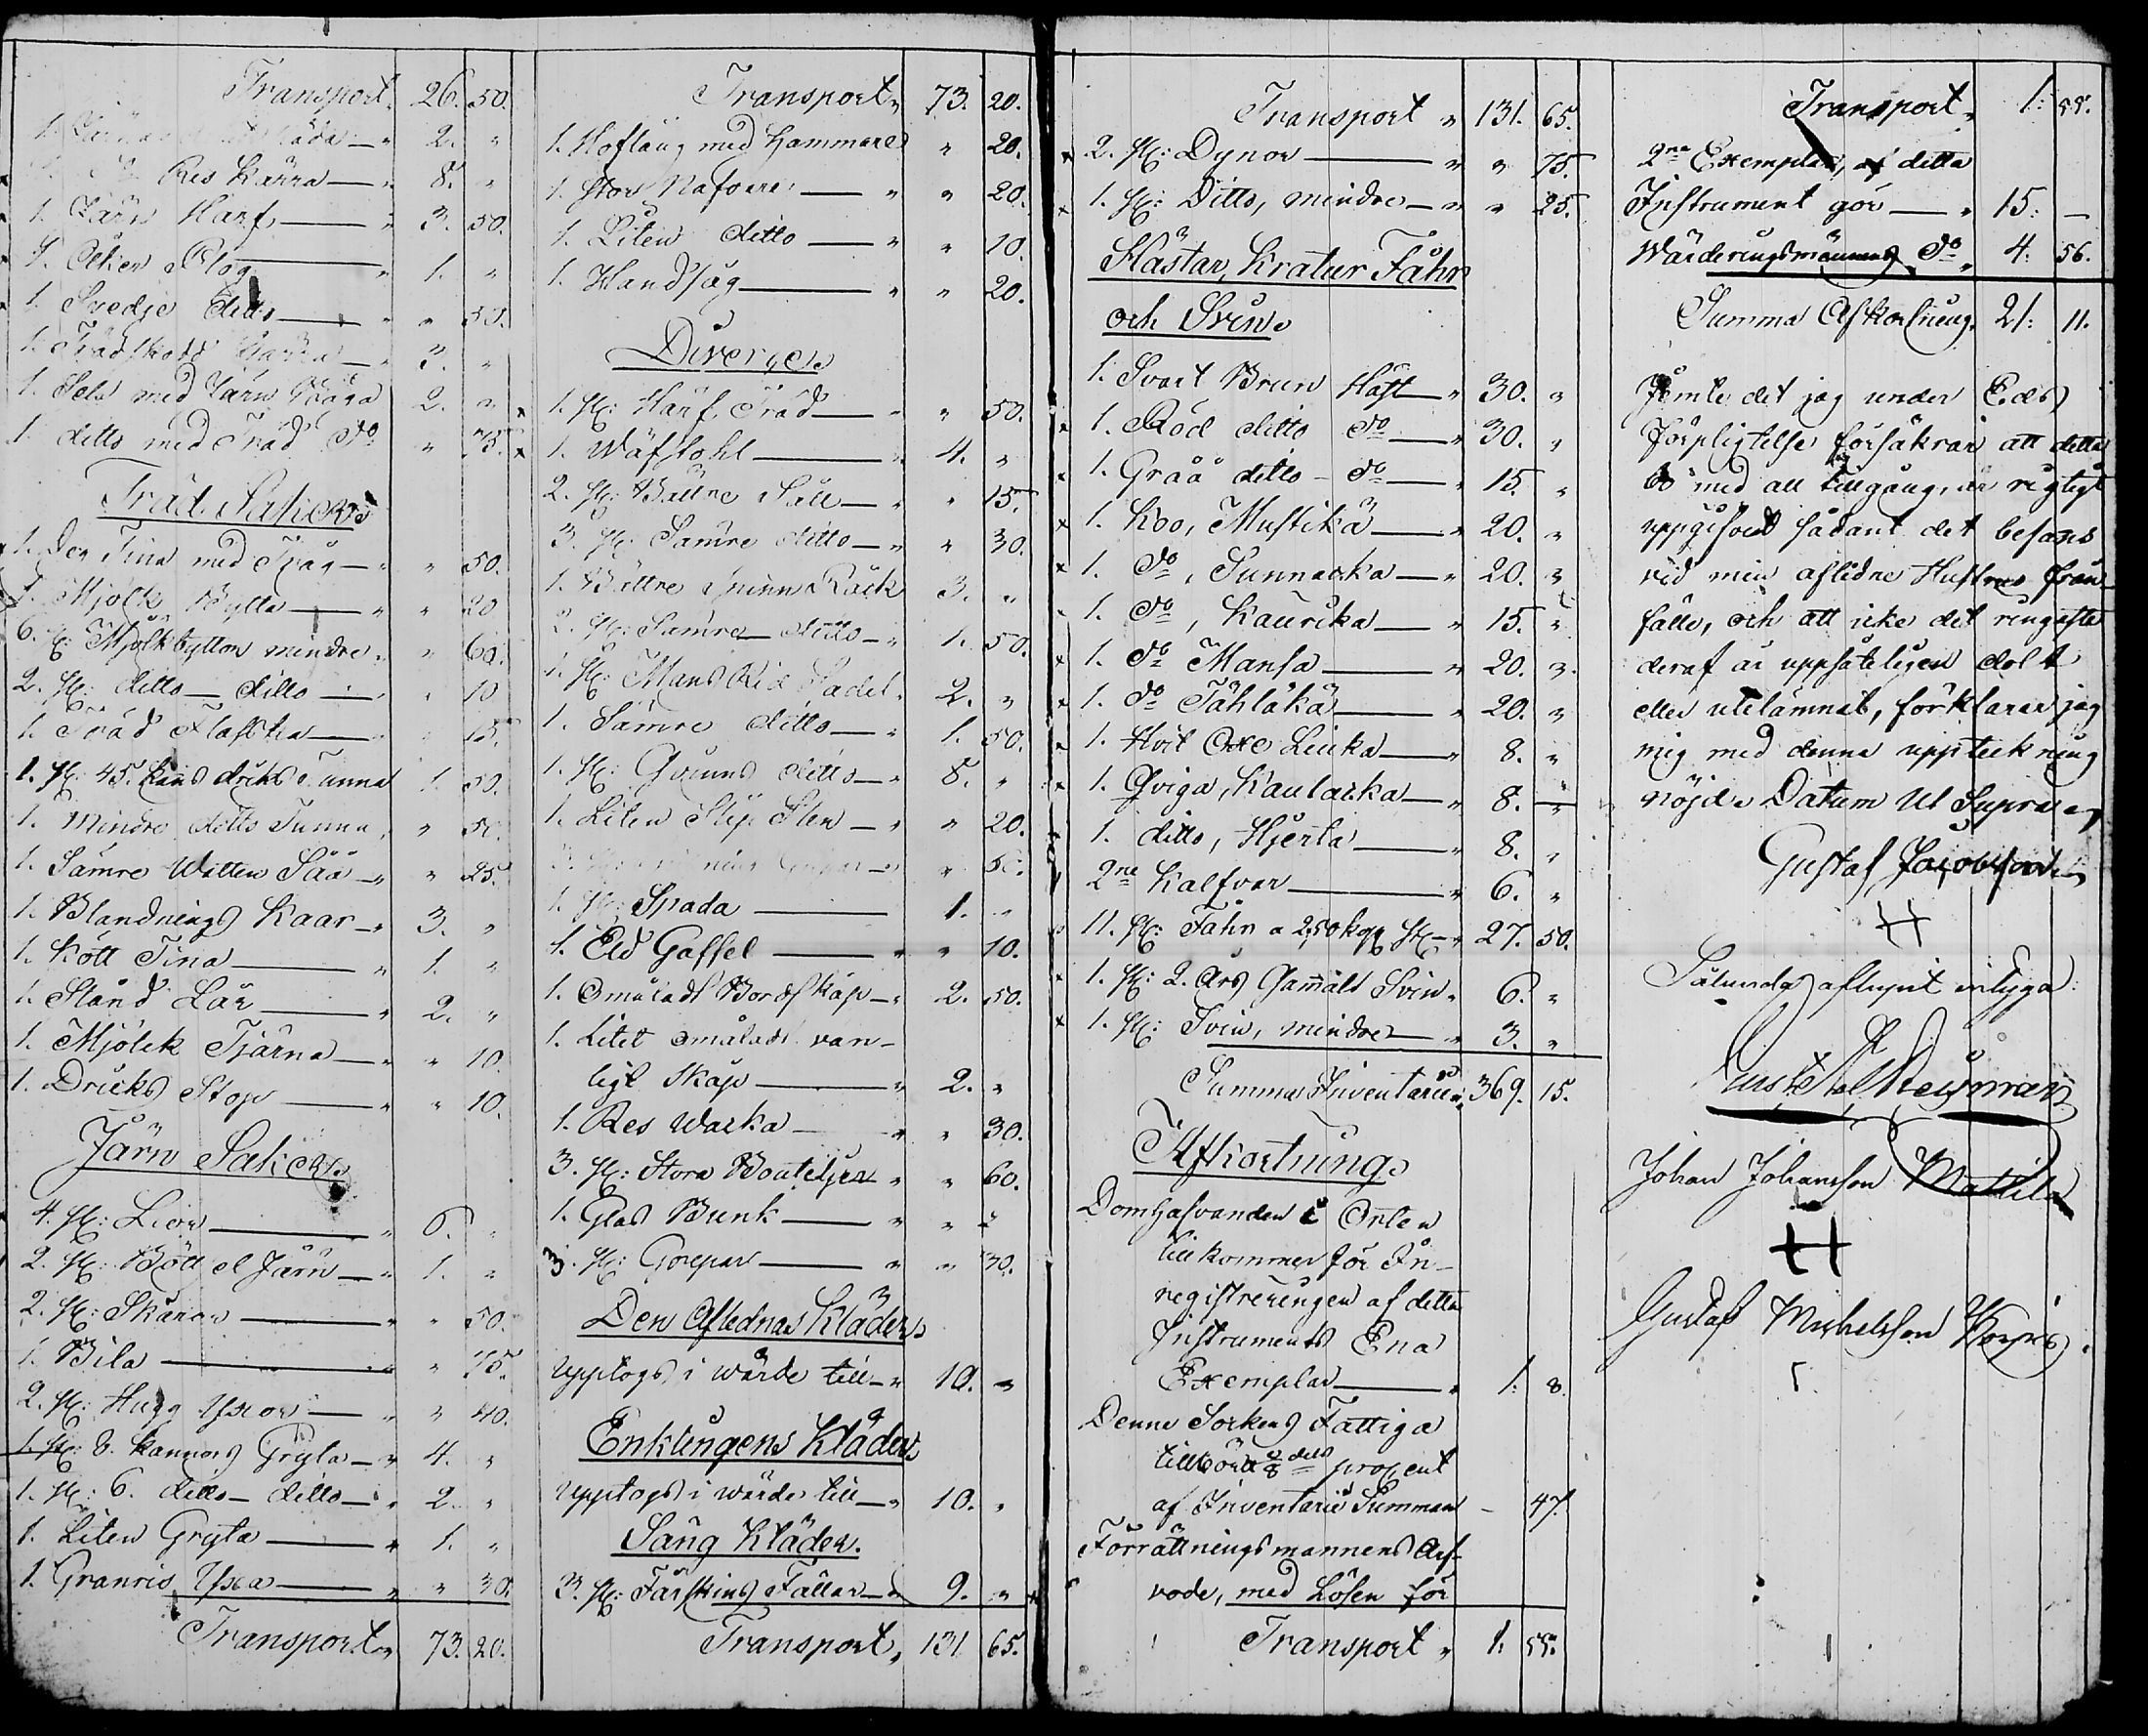 Transport „ 26. 50.
1. låda — „ 2. „
Res Kärra — „ 8. „
1. Järn Harf — „ 3. 50.
1. Åker Plog — „ 1. „
1. Svedje ditto — „ „ 50.
1. Kärra — „ 3. „
1. Sela med Järn 2. „
1. ditto med Träd do „ 75.
Träd Saker
1. Tina med — „ „ 50.
1. Mjölk Bytta — „ „ 20
6. st: Mjölkbyttor mindre „ „ 60.
2. st: ditto — ditto — „ „ 10
1. Träd — „ „ 15.
1. st: 45. Kans dricks Tunna 1. 50.
1. Mindre ditto Tunna „ „ 50.
1. Sämre Watten Såå — „ „ 25.
1. Blandnings Kaar — „ 3. „
1. Kött Tina — „ 1. „
1. Stånd Kar — „ 2. „
1. Mjölck Tjärna — „ „ 10.
1. Dricks Stop — „ „ 10.
Järn Saker
4. st: Liar — „ 6. „
2. st: Järn — „ 1. „
2. st: Skäror — „ „ 50.
1. Bila — „ „ 75.
2. st: Hugg Yxor — „ „ 40.
1. st: 8. Kannors Gryta — „ 4. „
1. st: 6. ditto — ditto — „ 2. „
1. Liten Gryta — „ 1. „
1. Granris Yxa — „ „ 30.
Transport „ 73. 20.
Transport „ 73. 20.
1. Hoftång med Hammare „ 20.
1. Stor Nafvare — „ „ 20.
1. Liten ditto — „ „ 10.
1. Handsåg — „ „ 20.
Diverse
1. st: Harf Träd — „ „ 50.
1. Wäfstohl — „ 4. „
2. st: Bättre Såll — „ „ 15.
3. st: Sämre ditto — „ „ 30.
1. Bättre Spinn Råck 3. „
2. st: Sämre ditto — „ 1. 50.
1. st: Mans Rid Sadel „ 2. „
1. Sämre ditto — „ 1. 50.
1. st: Qvinns ditto — „ 8. „
1. Liten Slip Sten — „ „ 20.
1. st: Spada — 1. „
1. Eld Gaffel — „ „ 10.
1. Omåladt Bordskåp — „ 2. 50.
1. Litet omåladt van-
ligt Skåp — „ 2. „
1. Res Warka — „ „ 30.
3. st: Stora Bouteljer „ „ 60.
1. Glas Bunk — „ „
3. st: Grepar — „ „ 30.
Den Aflednas Kläder
upptogs i wärde till — „ 10. „
Enklingens Kläder
upptogs i wärde till — „ 10. „
Säng Kläder.
3. st: Fårskins Fällar — „ 9. „
Transport „ 131 65.
Transport „ 131. 65.
2. st: Dynor — „ „ 75.
1. st: Ditto, mindre — „ „ 25.
Hästar, Kratur Fåhr
och Svin
1. Svart Brun Häst — „ 30. „
1. Röd ditto do — „ 30. „
1. Gråå ditto - do — „ 15. „
1. Koo, Mustikä — „ 20. „
1. do, Sunnarka — „ 20. „
1. do, Kaurika — „ 15. „
1. do Mansa — „ 20. „
1. do Tähläkä — „ 20. „
1. Hvit Oxe Linka — „ 8. „
1. Qviga, Kaularka — „ 8. „
1. ditto, Hjerta — „ 8. „
2ne Kalfvar — „ 6. „
11. st: Fåhr a 2,50 kop st — „ 27. 50.
1. st: 2. Års Gammält Svin „ 6. „
1. st: Svin, mindre — „ 3. „
Summa Inventarium 369. 15.
Afkortning
Domhafvanden i Orten
tillkommer för In-
registreringen af detta
Instruments Ena
Exemplar — „ 1: 8.
Denne Sockens Fattiga
tillhör 1/8 dels procent
af Inventarie Summan - 47.
Förrättningsmannens Arf-
vode, med Lösen för
Transport „ 1. 55.
Transport „ 1: 55.
2ne Exemplar, af detta
Instrument gör — „ 15: —
Wärderingsmännens do „ 4: 56.
Summa Afkortning 21: 11.
Jemte det jag under Eds
förpligtelse försäkrar att detta
bo med all tillgång, är rigtigt
uppgifvit sådant det befans
vid min aflidne Hustrus från-
fälle, och att icke det ringaste
deraf är uppsåteligen dolt
eller utelämnat, förklarar jag
mig med denna uppteckning
nöjd. Datum Ut Supra
Gustaf Jacobsson
Sålunda aflupit intyga:
Johan Johansson Mattila
Gustaf Michelsson